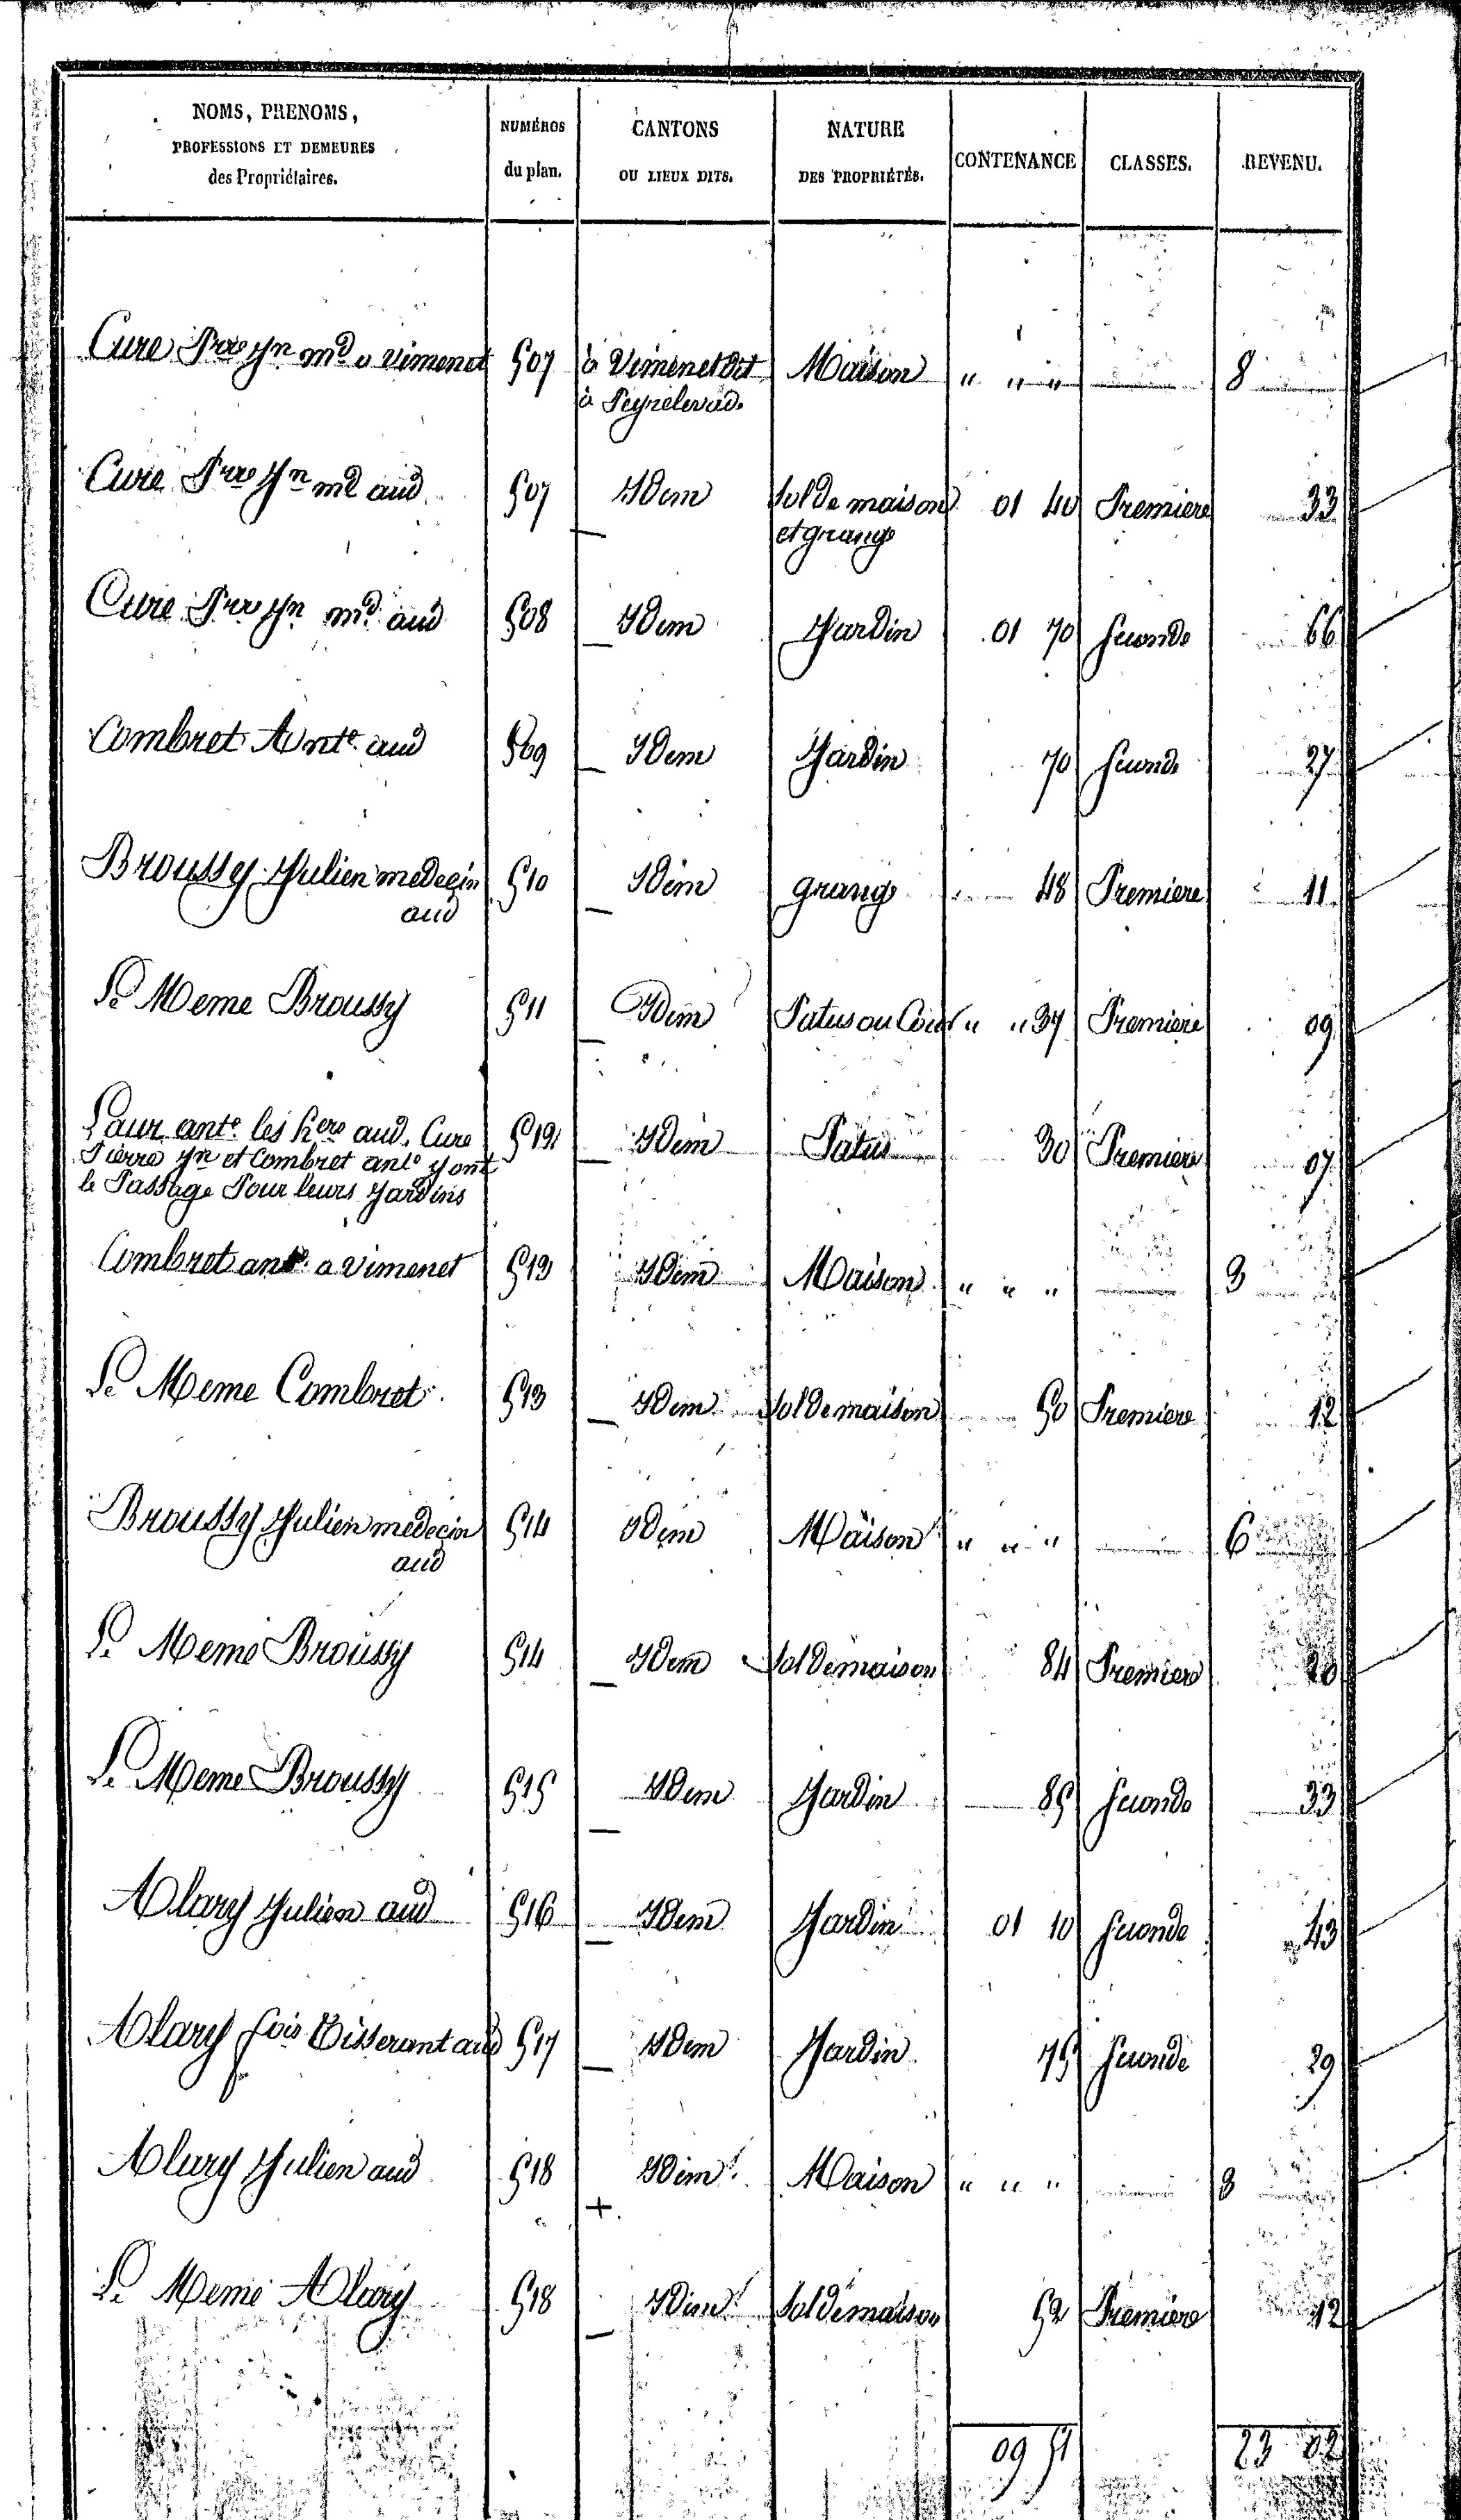 NOMS, PRENOMS,
PROFESSIONS ET DEMEURES
des Propriétaires.
NUMÉROS
du plan.
CANTONS
OU LIEUX DITS.
NATURE
DES PROPRIÉTÉS.
CONTENANCE
CLASSES.
REVENU.
Cure Prre Jn md a Vimenet 507 à Vimenet dit Maison " " " 8
à Peyrelevade
Cure Prre Jn md aud 507 Idem Sol de maison 01 40 Premiere 33
et grange
Cure Prre Jn md aud 508 Idem Jardin 01 70 Seconde 66
Combret Ante aud 509 Idem Jardin 70 Seconde 27
Broussy Julien medecin 510 Idem grange 48 Premiere 11
aud
Le Meme Broussy 511 Idem Patus ou Cour " " 37 Premiere 09
Laur ante les hers aud. Cure 512 Idem Patus 30 Premiere 07
Pierre Jn et Combret ante y ont
le Passage Pour leurs Jardins
Combret ante a Vimenet 513 Idem Maison " " " 3
Le Meme Combret 513 Idem Sol de maison 50 Premiere 12
Broussy Julien medecin 514 Idem Maison " " " 6
aud
Le Meme Broussy 514 Idem Sol de maison 84 Premiere 20
Le Meme Broussy 515 Idem Jardin 85 Seconde 33
Alary Julien aud 516 Idem Jardin 01 10 Seconde 43
Alary fois Tisserant aud 517 Idem Jardin 75 Seconde 29
Alary Julien aud 518 Idem Maison " " " 3
Le Meme Alary 518 Idem Sol de maison 52 Premiere 12
09 51 23 02